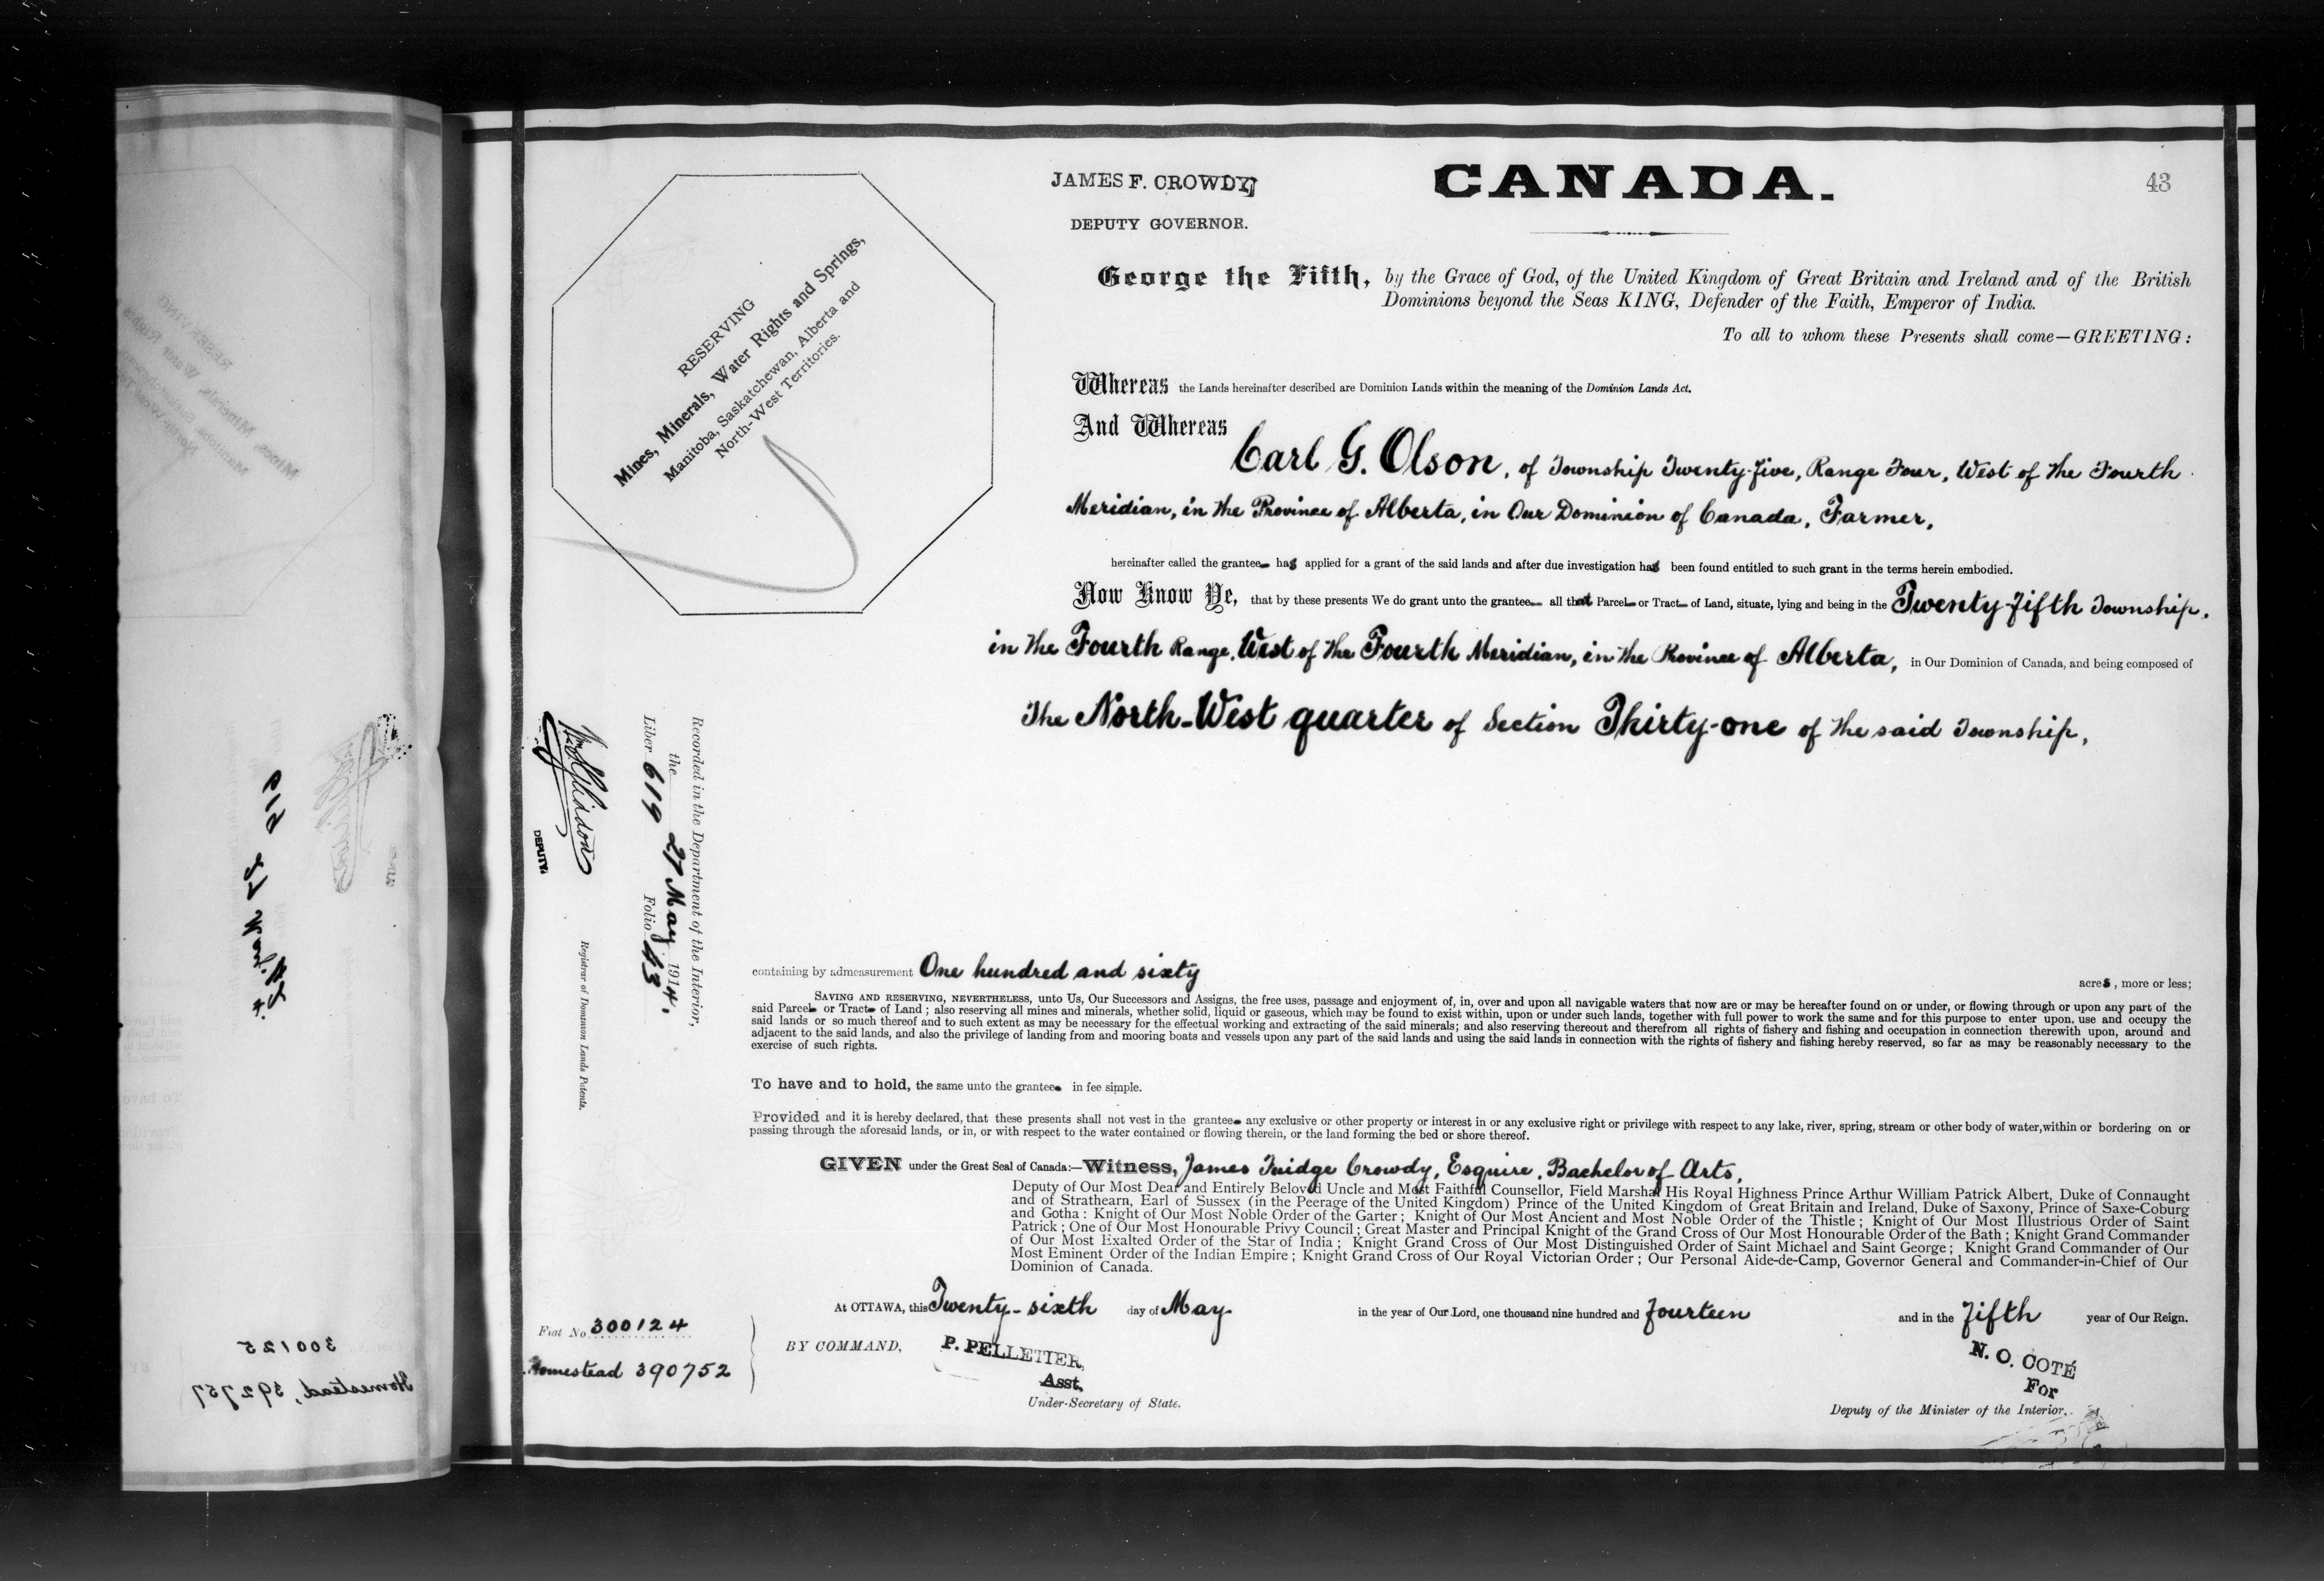 JAMES F. CROWDY,
DEPUTY GOVERNOR.
CANADA.
43
RESERVING
Mines, Minerals, Water Rights and Springs,
Manitoba, Saskatchewan, Alberta and
North-West Territories.
George the Fifth, by the Grace of God, of the United Kingdom of Great Britain and Ireland and of the British
Dominions beyond the Seas KING, Defender of the Faith, Emperor of India.
To all to whom these Presents shall come—GREETING:
Whereas the Lands hereinafter described are Dominion Lands within the meaning of the Dominion Lands Act.
And Whereas
Carl G. Olson, of Township Twenty-five, Range Four, West of the Fourth
Meridian, in the Province of Alberta, in Our Dominion of Canada, Farmer,
hereinafter called the grantee has applied for a grant of the said lands and after due investigation has been found entitled to such grant in the terms herein embodied.
Now Know Ye, that by these presents We do grant unto the grantee all that Parcel or Tract of Land, situate, lying and being in the Twenty-fifth Township,
in the Fourth Range, West of the Fourth Meridian, in the Province of Alberta, in Our Dominion of Canada, and being composed of
The North-West quarter of Section Thirty-one of the said Township,
Recorded in the Department of the Interior,
the 27 May 1914,
Liber 619 Folio 43
DEPUTY
Registrar of Dominion Lands Patents.
containing by admeasurement One hundred and sixty acres, more or less;
SAVING AND RESERVING, NEVERTHELESS, unto Us, Our Successors and Assigns, the free uses, passage and enjoyment of, in, over and upon all navigable waters that now are or may be hereafter found on or under, or flowing through or upon any part of the
said Parcel or Tract of Land; also reserving all mines and minerals, whether solid, liquid or gaseous, which may be found to exist within, upon or under such lands, together with full power to work the same and for this purpose to enter upon, use and occupy the
said lands or so much thereof and to such extent as may be necessary for the effectual working and extracting of the said minerals; and also reserving thereout and therefrom all rights of fishery and fishing and occupation in connection therewith upon, around and
adjacent to the said lands, and also the privilege of landing from and mooring boats and vessels upon any part of the said lands and using the said lands in connection with the rights of fishery and fishing hereby reserved, so far as may be reasonably necessary to the
exercise of such rights.
To have and to hold, the same unto the grantee in fee simple.
Provided and it is hereby declared, that these presents shall not vest in the grantee any exclusive or other property or interest in or any exclusive right or privilege with respect to any lake, river, spring, stream or other body of water, within or bordering on or
passing through the aforesaid lands, or in, or with respect to the water contained or flowing therein, or the land forming the bed or shore thereof.
GIVEN under the Great Seal of Canada:—Witness, James Fuidge Crowdy, Esquire, Bachelor of Arts,
Deputy of Our Most Dear and Entirely Beloved Uncle and Most Faithful Counsellor, Field Marshal His Royal Highness Prince Arthur William Patrick Albert, Duke of Connaught
and of Strathearn, Earl of Sussex (in the Peerage of the United Kingdom) Prince of the United Kingdom of Great Britain and Ireland, Duke of Saxony, Prince of Saxe-Coburg
and Gotha: Knight of Our Most Noble Order of the Garter; Knight of Our Most Ancient and Most Noble Order of the Thistle; Knight of Our Most Illustrious Order of Saint
Patrick; One of Our Most Honourable Privy Council; Great Master and Principal Knight of the Grand Cross of Our Most Honourable Order of the Bath; Knight Grand Commander
of Our Most Exalted Order of the Star of India; Knight Grand Cross of Our Most Distinguished Order of Saint Michael and Saint George; Knight Grand Commander of Our
Most Eminent Order of the Indian Empire; Knight Grand Cross of Our Royal Victorian Order; Our Personal Aide-de-Camp, Governor General and Commander-in-Chief of Our
Dominion of Canada.
At OTTAWA, this Twenty-sixth day of May in the year of Our Lord, one thousand nine hundred and fourteen and in the fifth year of Our Reign.
Fiat No 300124
Homestead 390752
BY COMMAND,
P. PELLETIER,
Asst,
Under-Secretary of State.
N. O. COTÉ
For
Deputy of the Minister of the Interior.
300125
Homestead, 392757